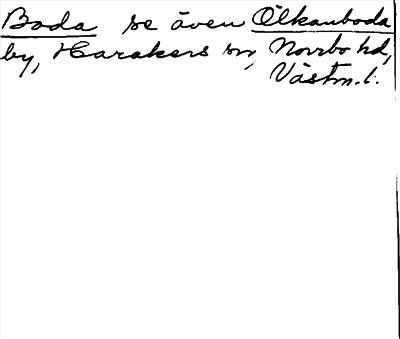 Boda se även Ölkanboda
by, Harakers sn, Norrbo hd,
Västm. l.